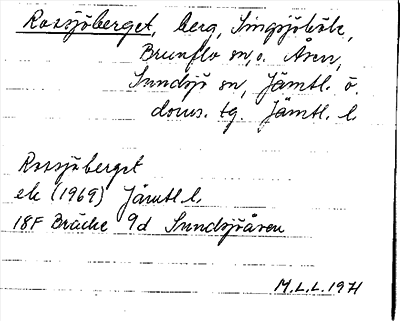 Rossjöberget, berg, Singsjöbäle,
Brunflo sn, o. Åsen,
Sundsjö sn, Jämtl. ö.
doms. tg. Jämtl. l.
Rossjöberget
ek (1969) Jämtl l.
18F Bräcke 9d Sundsjöåsen
M.L.L. 1971